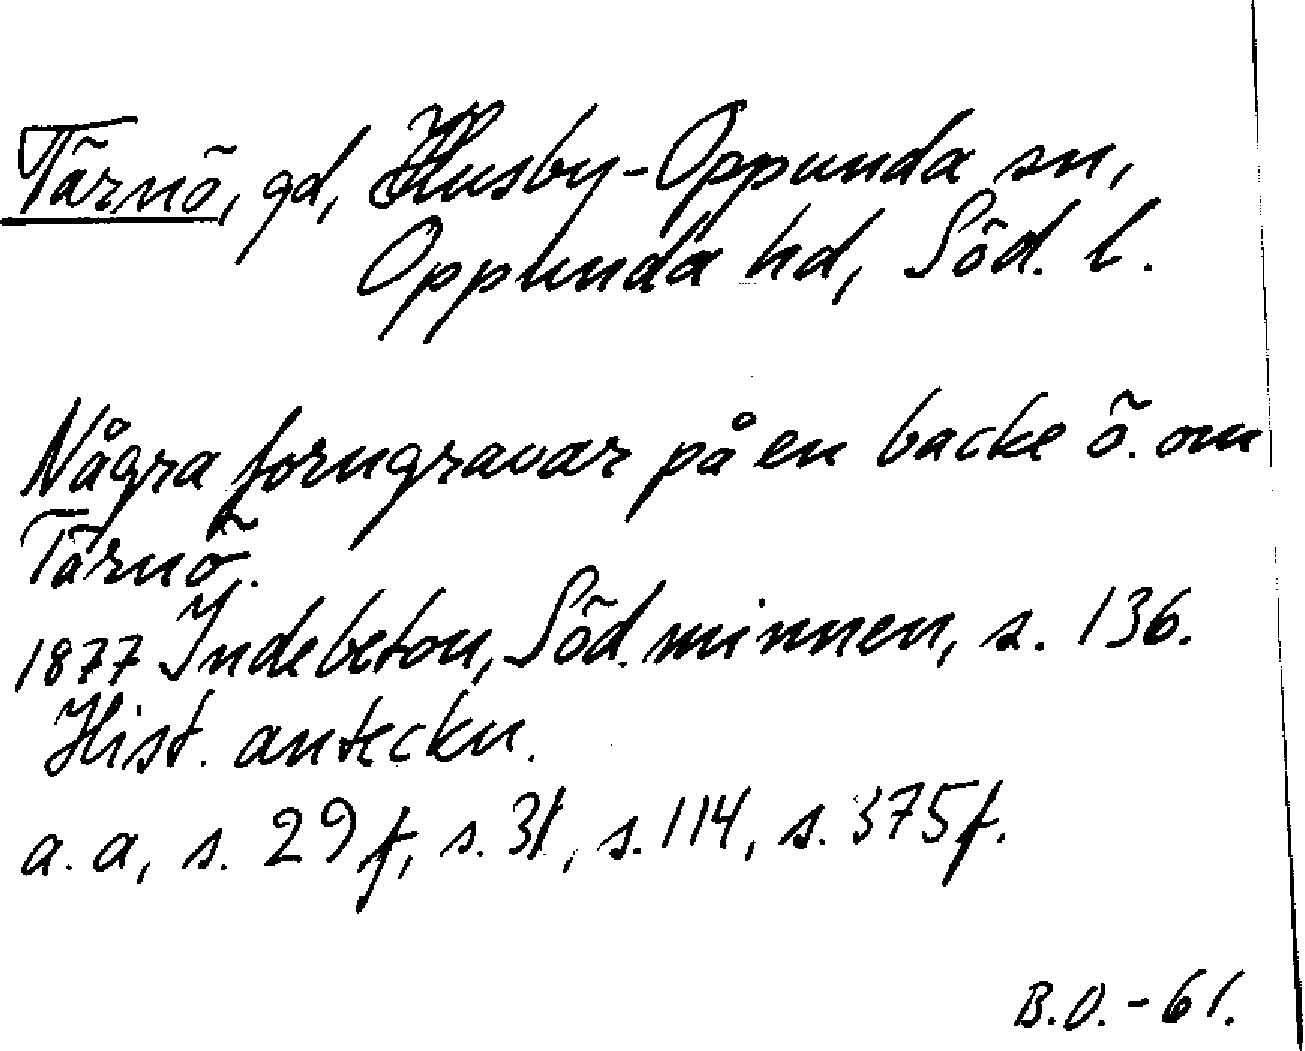 Tärnö, gd, Husby-Oppunda sn,
Oppunda hd, Söd. l.
Några forngravar på en backe ö. om
Tärnö.
1877 Indebetou, Söd. minnen, s. 136.
Hist. anteckn.
a. a, s. 29 f, s. 31, s. 114, s. 375 f.
B.O. - 61.